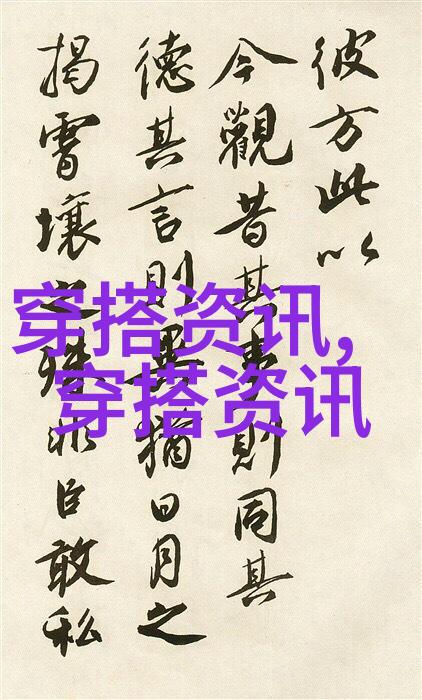 彼方此以
今觀昔其事則同其
德其言則異猶日月之
揭霄壤之殊非臣敢私
穿搭资讯,
穿搭资讯